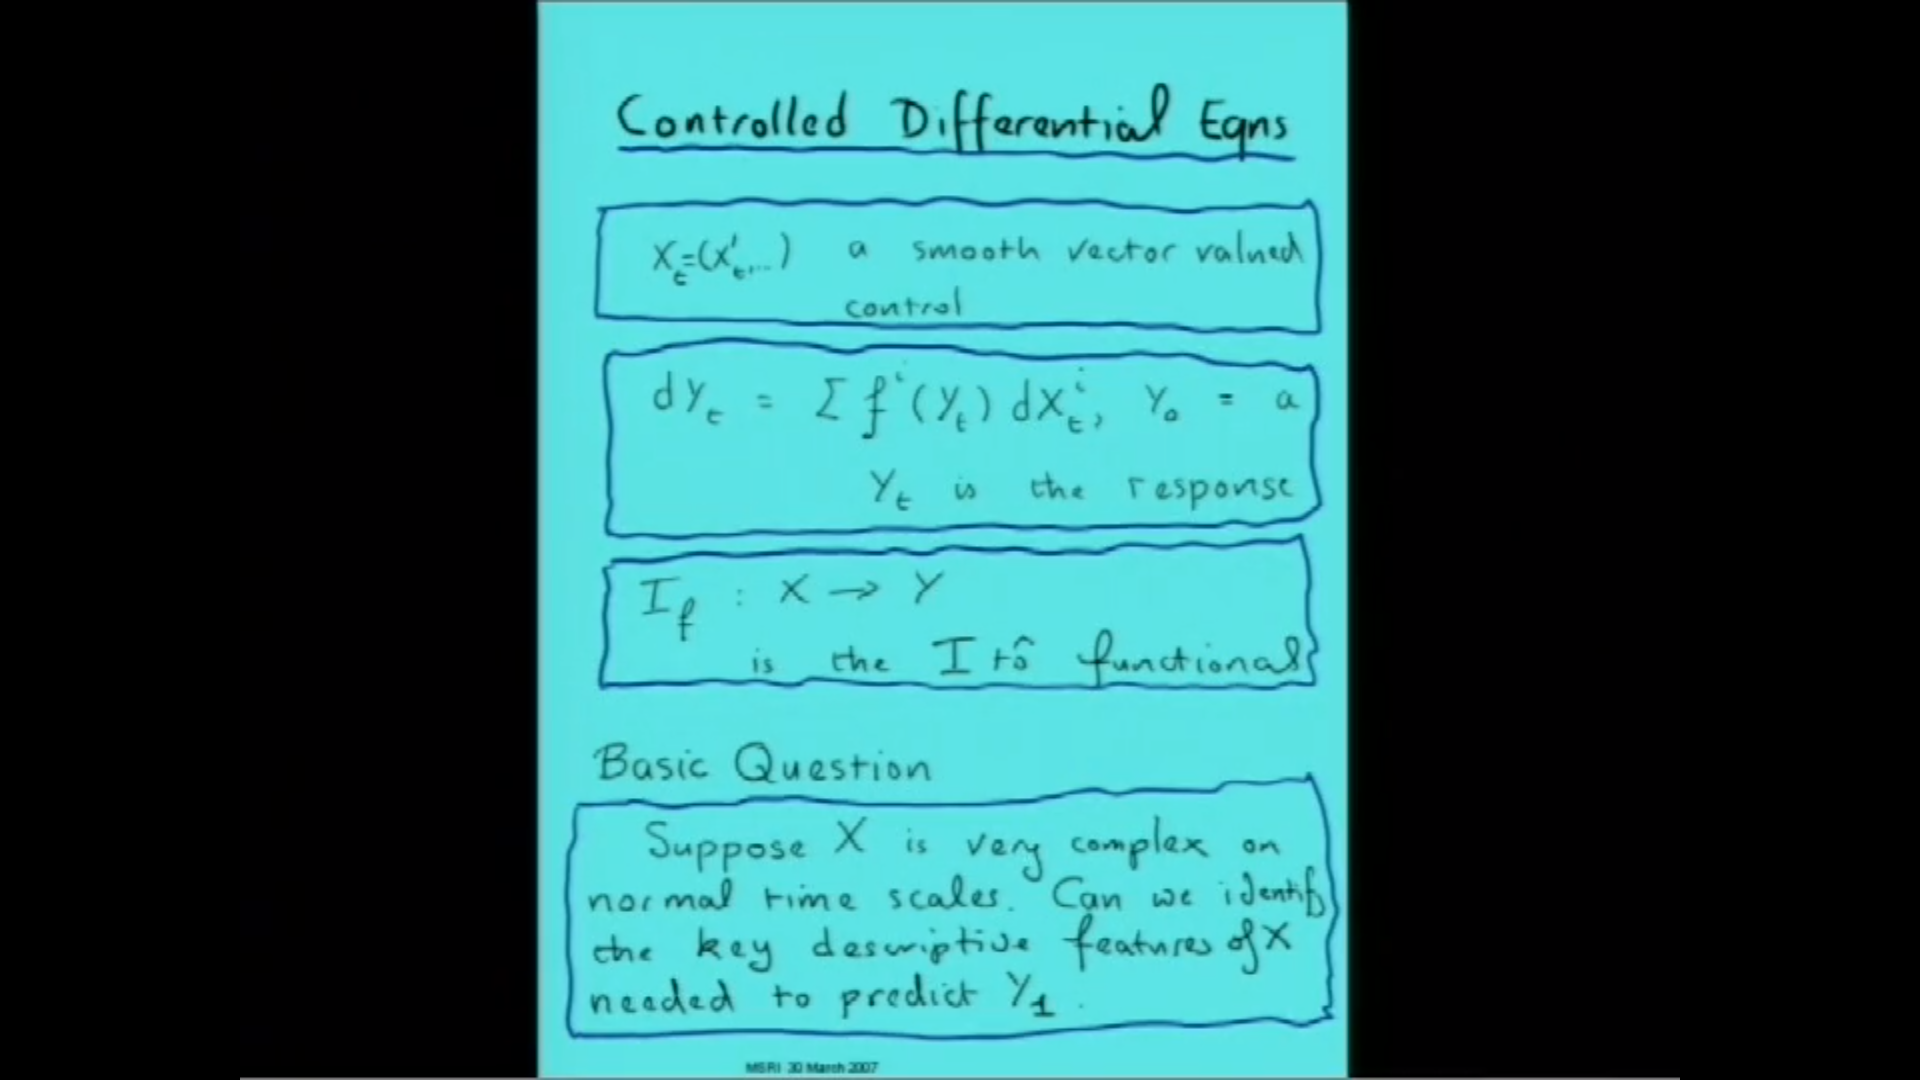 Controlled Differential Eqns
X_t=(X^1_t,...) a smooth vector valued
control
dY_t = Σ f^i(Y_t) dX^i_t, Y_0 = a
Y_t is the response
I_f : X → Y
is the Itô functional
Basic Question
Suppose X is very complex on
normal time scales. Can we identify
the key descriptive features of X
needed to predict Y_1.
MSRI 30 March 2007